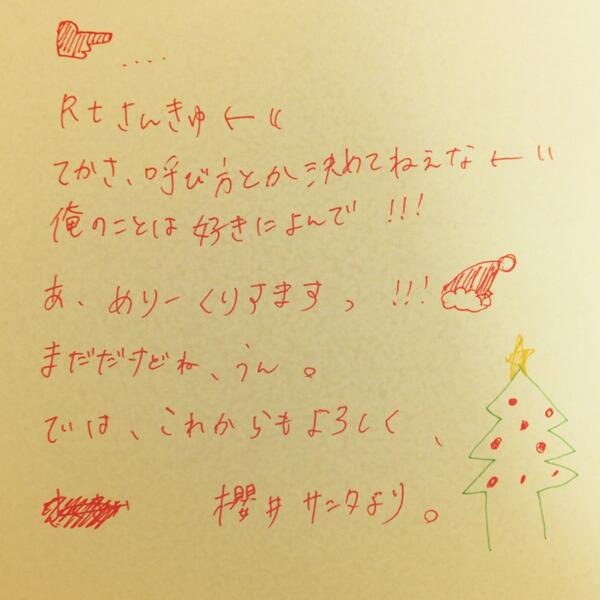 ....
Rtさんきゅ←“
てかさ、呼び方とか決めてねえな←“
俺のことは好きによんで!!!
あ、めりーくりすますっ!!!
まだだけどね、うん。
では、これからもよろしく、
櫻井サンタより。